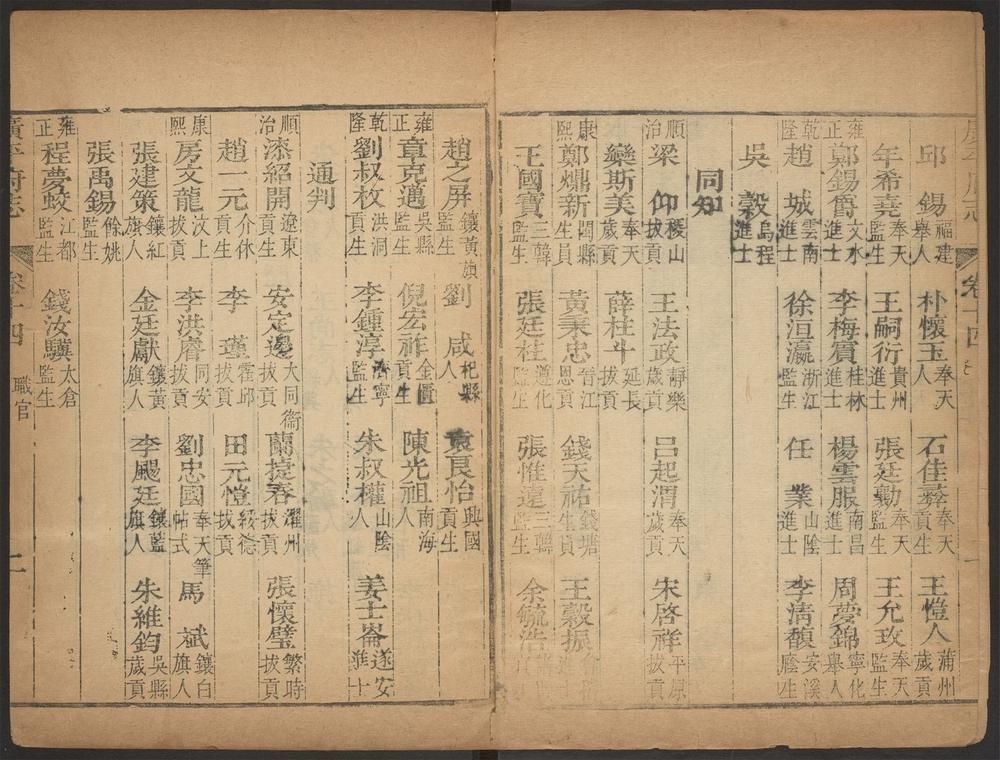 邱錫福建舉人 朴懷玉奉天人 石佳彝奉天貢生 王愷人蒲州歲貢
年希堯奉天監生 王嗣衍貴州進士 張廷勷奉天監生 王允玫奉天監生
雍正 鄭錫爵文水進士 李梅賓桂林進士 楊雲服南昌進士 周夢錦寧化舉人
乾隆 趙城雲南進士 徐洹瀛浙江監生 任業山陰進士 李清馥安溪廕生
吳穀烏程進士
同知
順治 梁仰稷山拔貢 王法政靜樂歲貢 呂起渭奉天歲貢 宋啓祥平原拔貢
欒斯美奉天歲貢 薛柱斗延長拔貢
康熙 鄭爌新閩縣生員 黃秉忠晉江恩貢 錢天祐錢塘生員 王穀振
王國寶三韓監生 張廷桂遵化 張惟遠三韓監生 余毓浩
趙之屏鑲黃旗監生 劉咸杞縣人 袁良怡興國貢生
雍正 章克邁吳縣監生 倪宏祚金匱貢生 陳光祖南海人
乾隆 劉叔枚洪洞貢生 李鍾淳濟寧監生 朱叔權山陰人 姜士崙遂安進士
通判
順治 漆紹開遼東貢生 安定邊大同衞拔貢 蘭捷春耀州拔貢 張懷璧繁時拔貢
趙一元介休貢生 李瑾霍邱拔貢 田元愷綏德拔貢
康熙 房文龍汶上拔貢 李洪睿同安拔貢 劉忠國奉天筆帖式 馬斌鑲白旗人
張建策鑲紅旗人 金廷獻鑲黃旗人 李颺廷鑲藍旗人 朱維鈞吳縣歲貢
張禹錫餘姚監生
雍正 程夢蛟江都監生 錢汝驥太倉監生
廣平府志 卷十四 職官 二